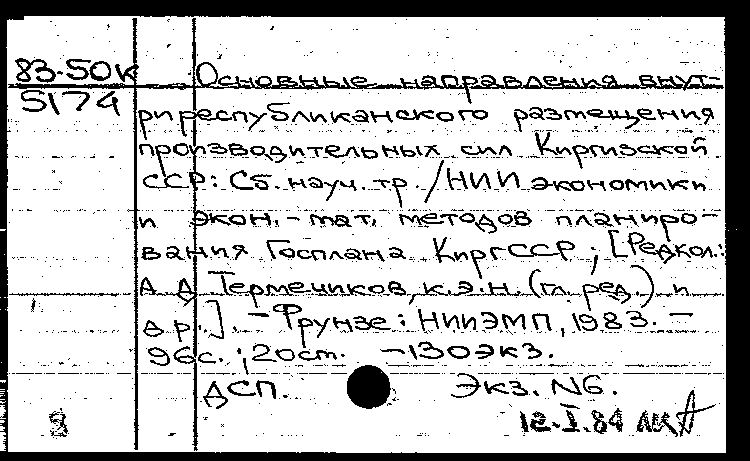 83-50К Основные направления внут-
5174 рireспубликанского размещения
производительных сил Киргизской
ССР: Сб. науч. тр. / НИИ экономики
и экон.-мат. методов планиро-
вания Госплана КиргССР ; [Редкол.:
А Д Термечиков, к.э.н. (гл. ред.) и
др.]. – Фрунзе : НИИЭМП, 1983. –
96с. ; 20см. – 130экз.
ДСП. Экз. N6.
8 12.I.84